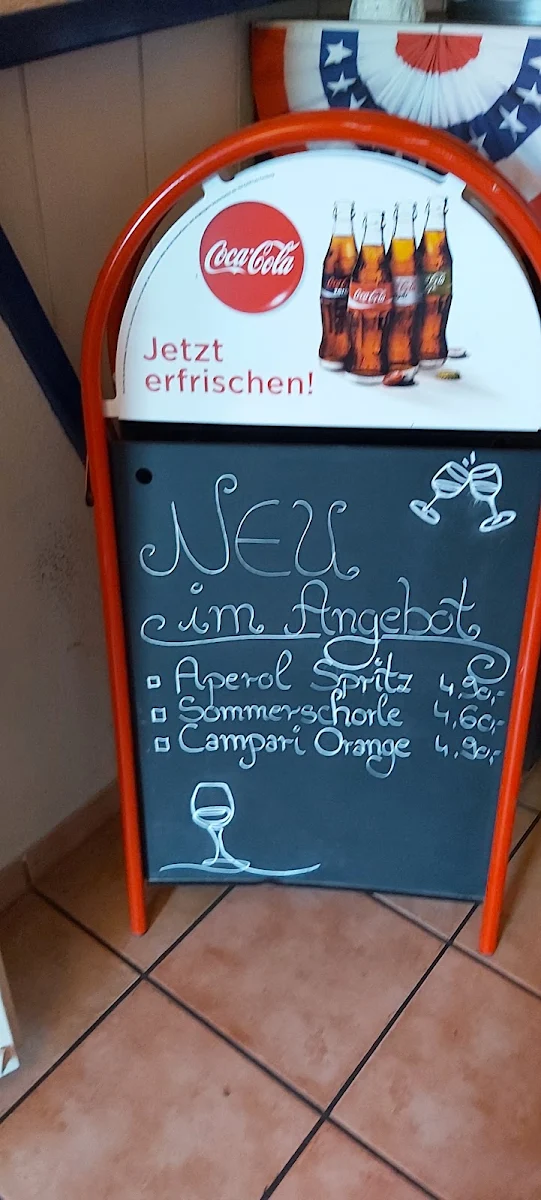 Coca-Cola
Coca-Cola
Jetzt
erfrischen!
NEU
im Angebot
Aperol Spritz 4,90,-
Sommerschorle 4,60,-
Campari Orange 4,90,-